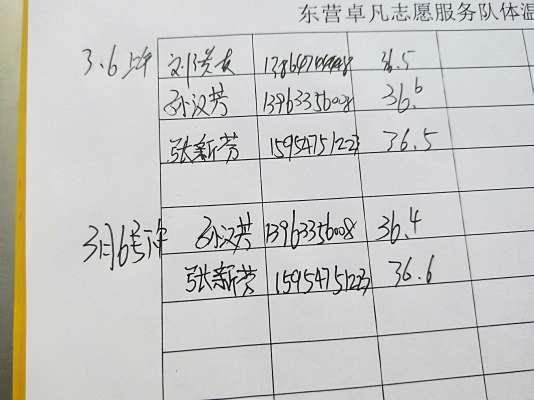 东营卓凡志愿服务队体温
3.6上午 36.5
孙汉芳 13963356008 36.6
张新芳 15954751223 36.5
3月6号下午 孙汉芳 13963356008 36.4
张新芳 15954751223 36.6